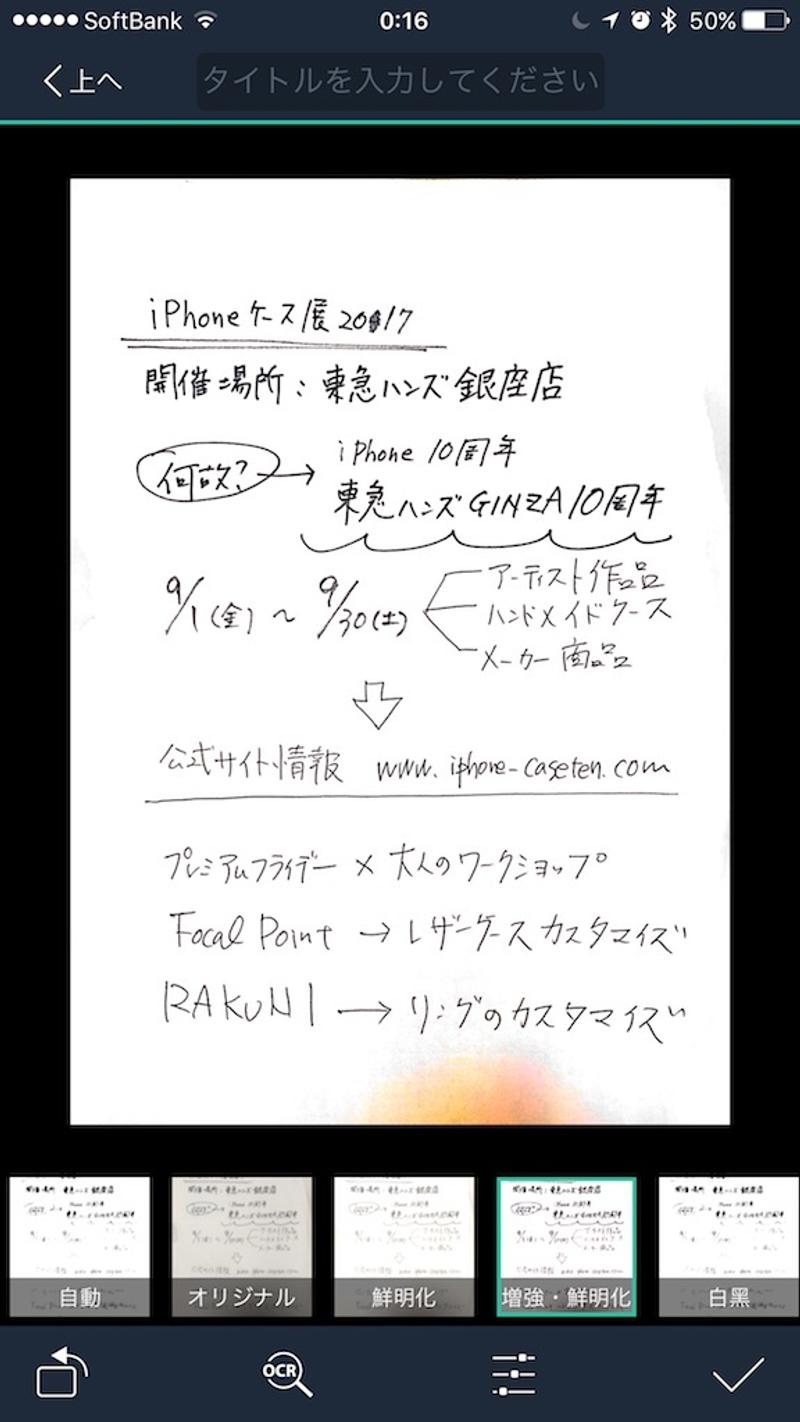 SoftBank 0:16 50%
上へ タイトルを入力してください
iPhoneケース展2017
開催場所：東急ハンズ銀座店
何故？→ iPhone 10周年
東急ハンズGINZA10周年
9/1(金)～9/30(土)
アーティスト作品
ハンドメイドケース
メーカー商品
公式サイト情報 www.iphone-caseten.com
プレミアムフライデー×大人のワークショップ
Focal Point → レザーケースカスタマイズ
RAKUNI → リングのカスタマイズ
自動 オリジナル 鮮明化 増強・鮮明化 白黒
OCR